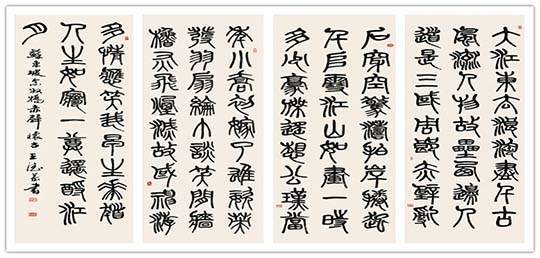 大江東去浪淘盡千古
風流人物故壘西邊人
道是三國周郎赤壁亂
石穿空驚濤拍岸捲起
千堆雪江山如畫一時
多少豪傑遙想公瑾當
年小喬初嫁了雄姿英
發羽扇綸巾談笑間檣
櫓灰飛煙滅故國神遊
多情應笑我早生華髮
人生如夢一尊還酹江
月
蘇東坡念奴嬌赤壁懷古 王 書